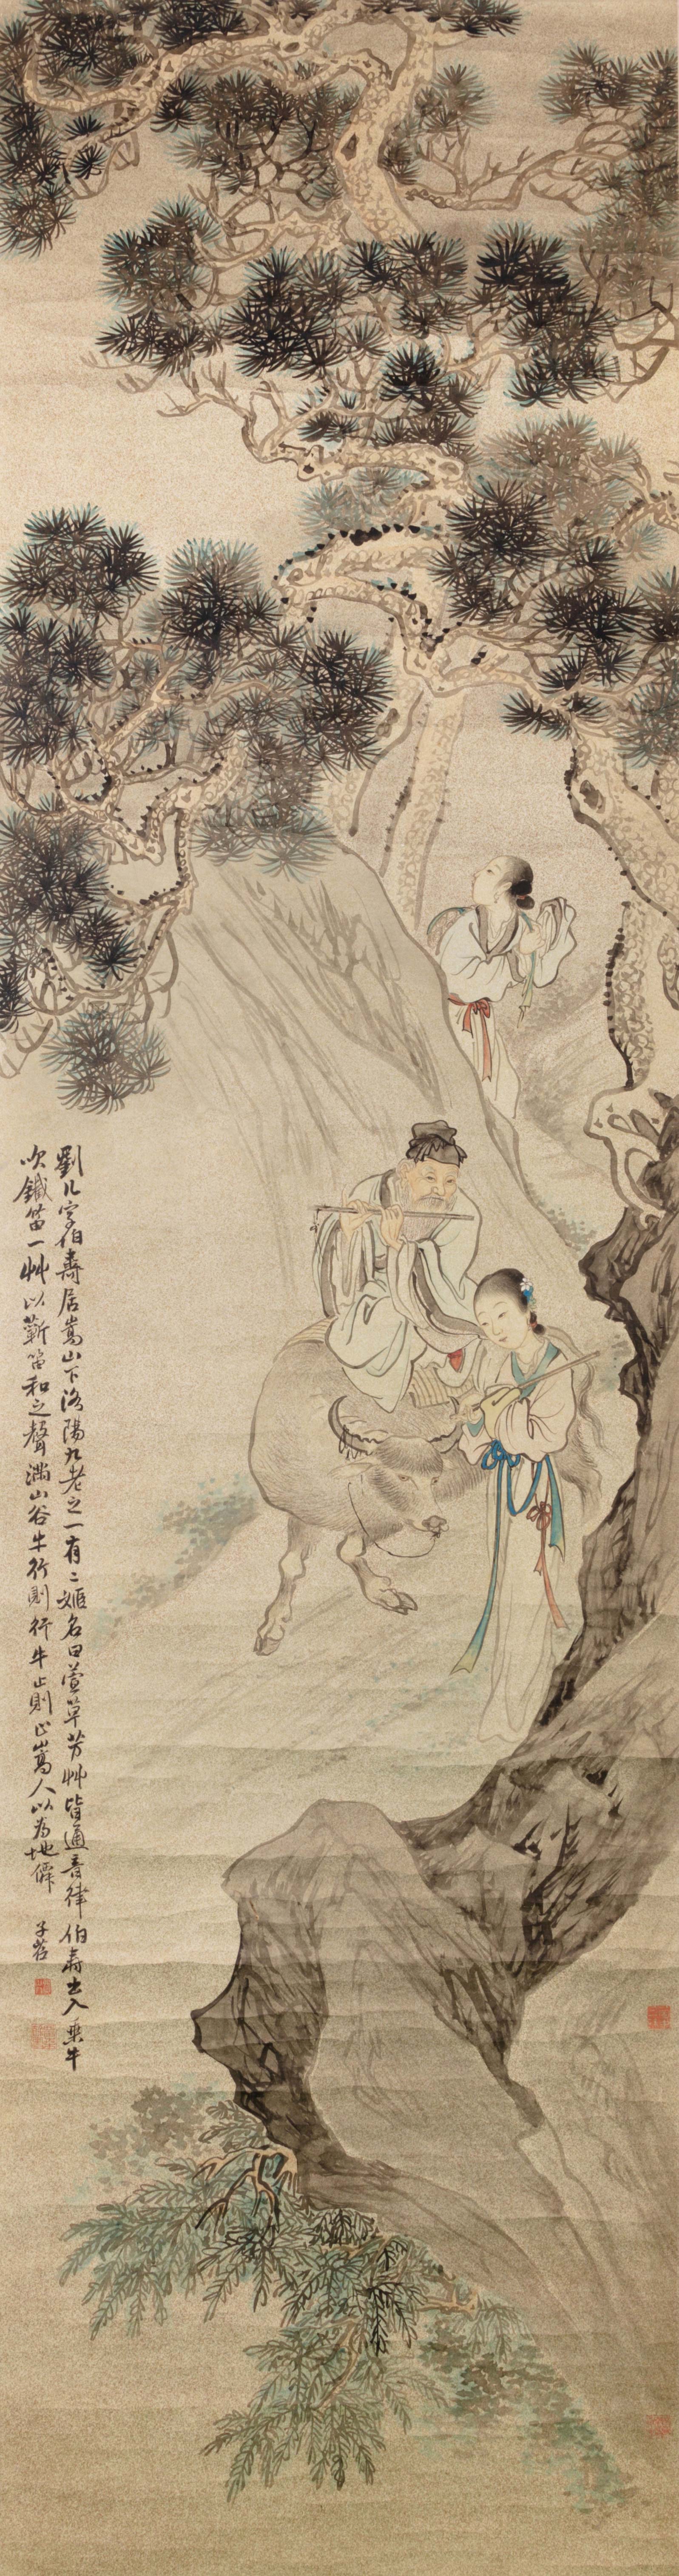 劉几字伯壽居嵩山下洛陽九老之一有二姬名曰萱草芳艸皆通音律伯壽出入乘牛
吹鐵笛一艸以蘄笛和之聲滿山谷牛行則行牛止則止嵩人以為地僊
子苕